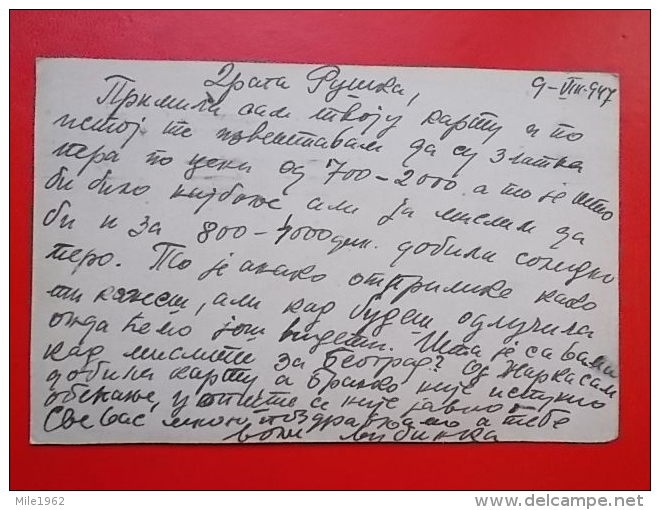 Драга Рушка, 9-VIII-947
Примила сам твоју карту и по
истој те извештавам да су златна
пера по цени од 700-2000. а то је што
би било најбоље али ја мислим да
би и за 800-1000 дин. добила солидно
перо. То је онако отприлике како
ти кажем, али кад будеш одлучила
онда ћемо још видети. Шта је са вама
кад мислите за Београд? Од Жарка сам
добила карту а Бранко није испунио
обећање, уопште се није јавио.
Све вас много поздрављамо а тебе
воли Љубинка
Mile1962
delcampe.net